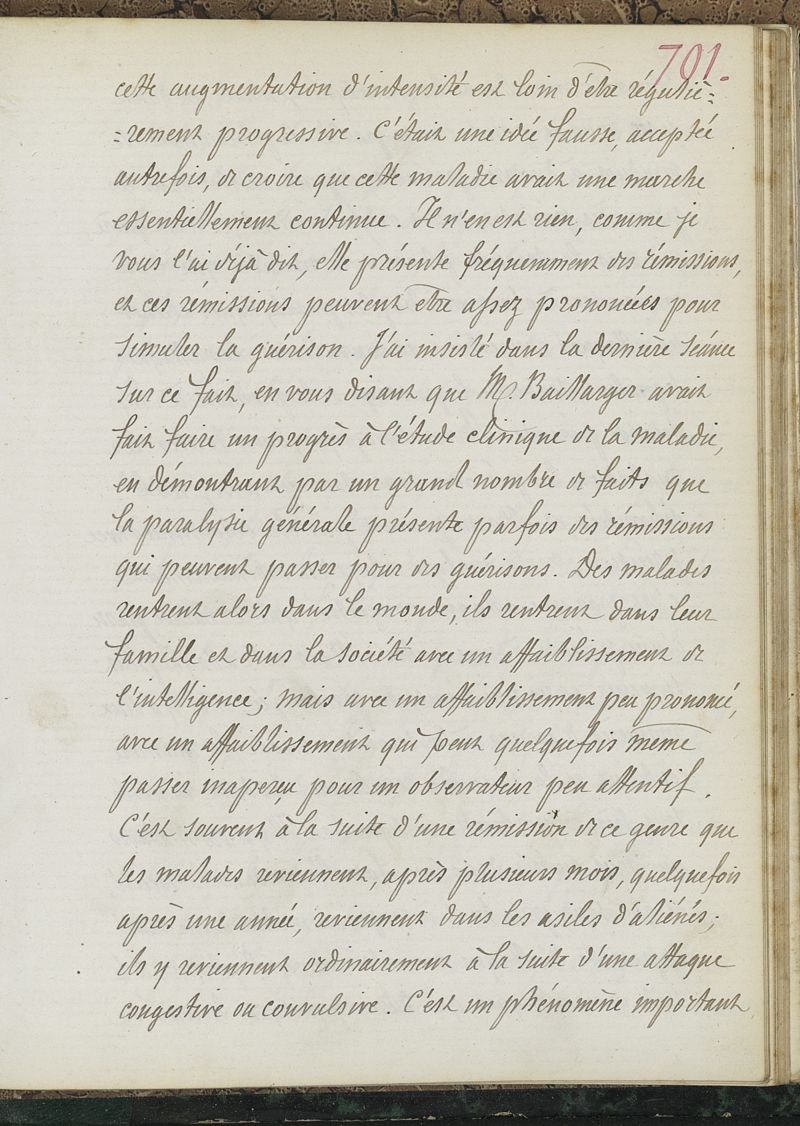 701.
cette augmentation d'intensité est loin d'être réguliè=
=rement progressive. C'était une idée fausse, acceptée
autrefois, de croire que cette maladie avait une marche
essentiellement continue. Il n'en est rien, comme je
vous l'ai déjà dit, elle présente fréquemment des rémissions,
et ces rémissions peuvent être assez prononcées pour
simuler la guérison. J'ai insisté dans la dernière séance
sur ce fait, en vous disant que Mr. Baillarger avait
fait faire un progrès à l'étude clinique de la maladie,
en démontrant par un grand nombre de faits que
la paralysie générale présente parfois des rémissions
qui peuvent passer pour des guérisons. Des malades
rentrent alors dans le monde, ils rentrent dans leur
famille et dans la société avec un affaiblissement de
l'intelligence; mais avec un affaiblissement peu prononcé,
avec un affaiblissement qui peut quelquefois même
passer inaperçu pour un observateur peu attentif.
C'est souvent à la suite d'une rémission de ce genre que
les malades reviennent, après plusieurs mois, quelquefois
après une année, reviennent dans les asiles d'aliénés;
ils y reviennent ordinairement à la suite d'une attaque
congestive ou convulsive. C'est un phénomène important